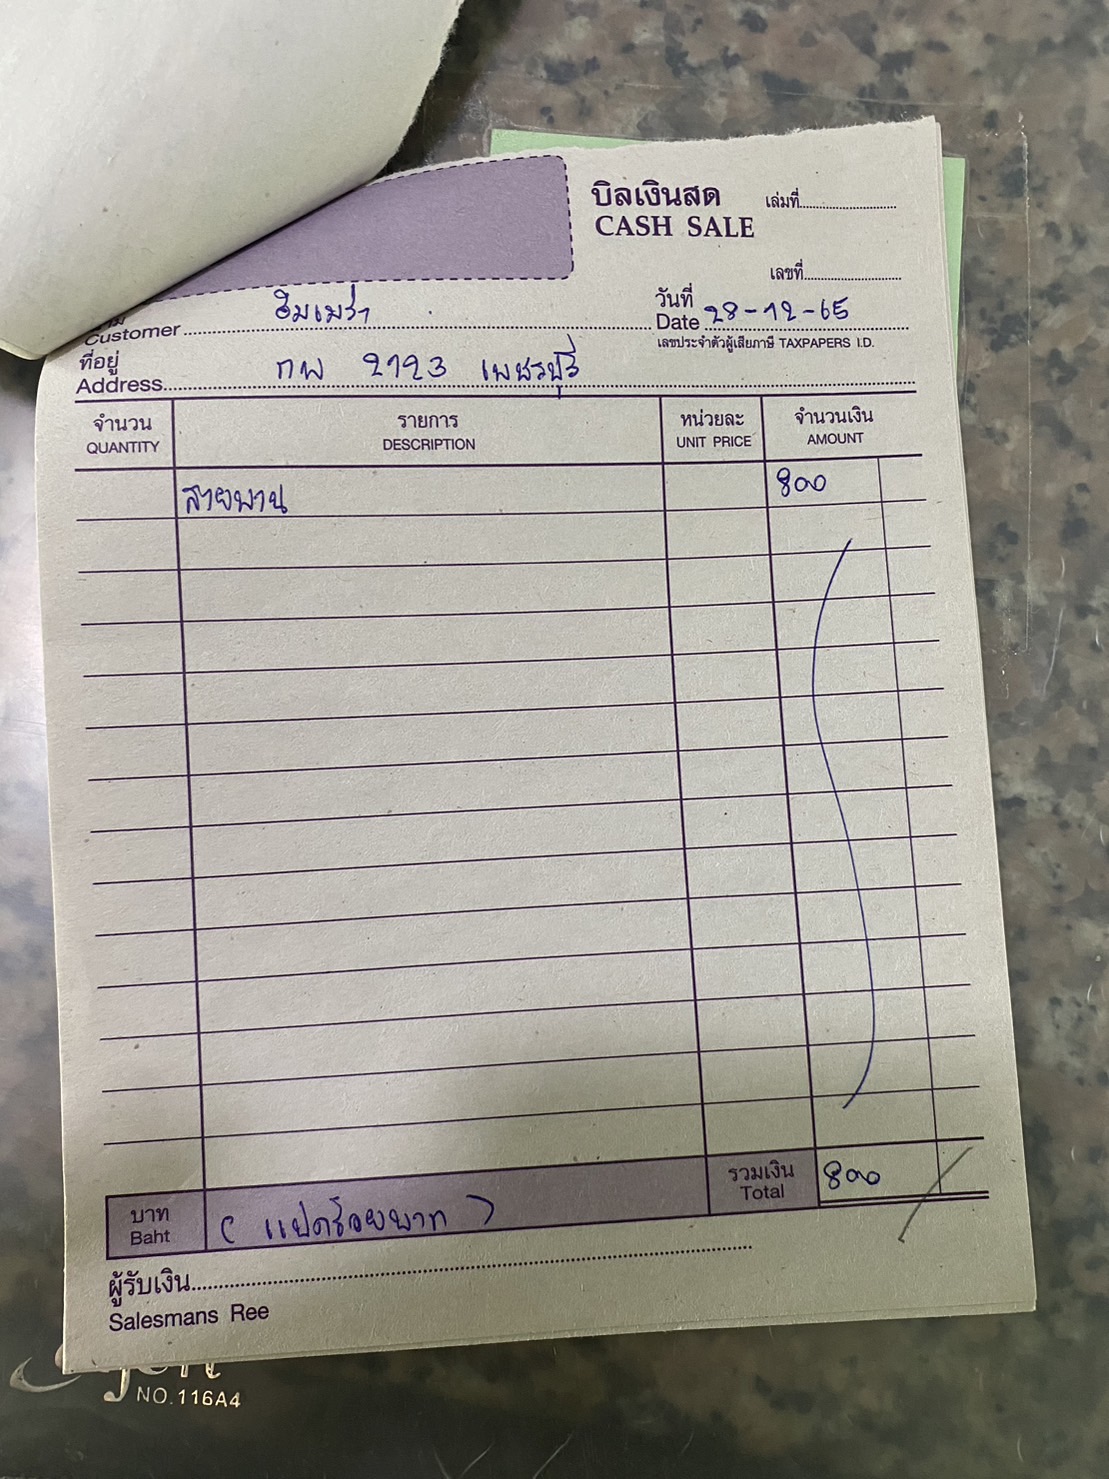 บิลเงินสด เล่มที่
CASH SALE
เลขที่
Customer อิมเมร่า
วันที่
Date 28-12-65
เลขประจำตัวผู้เสียภาษี TAXPAPERS I.D.
ที่อยู่
Address กพ 2123 เพชรบุรี
จำนวน รายการ หน่วยละ จำนวนเงิน
QUANTITY DESCRIPTION UNIT PRICE AMOUNT
สายพาน 800
บาท (แปดร้อยบาท) รวมเงิน 800
Baht Total
ผู้รับเงิน
Salesmans Ree
NO.116A4